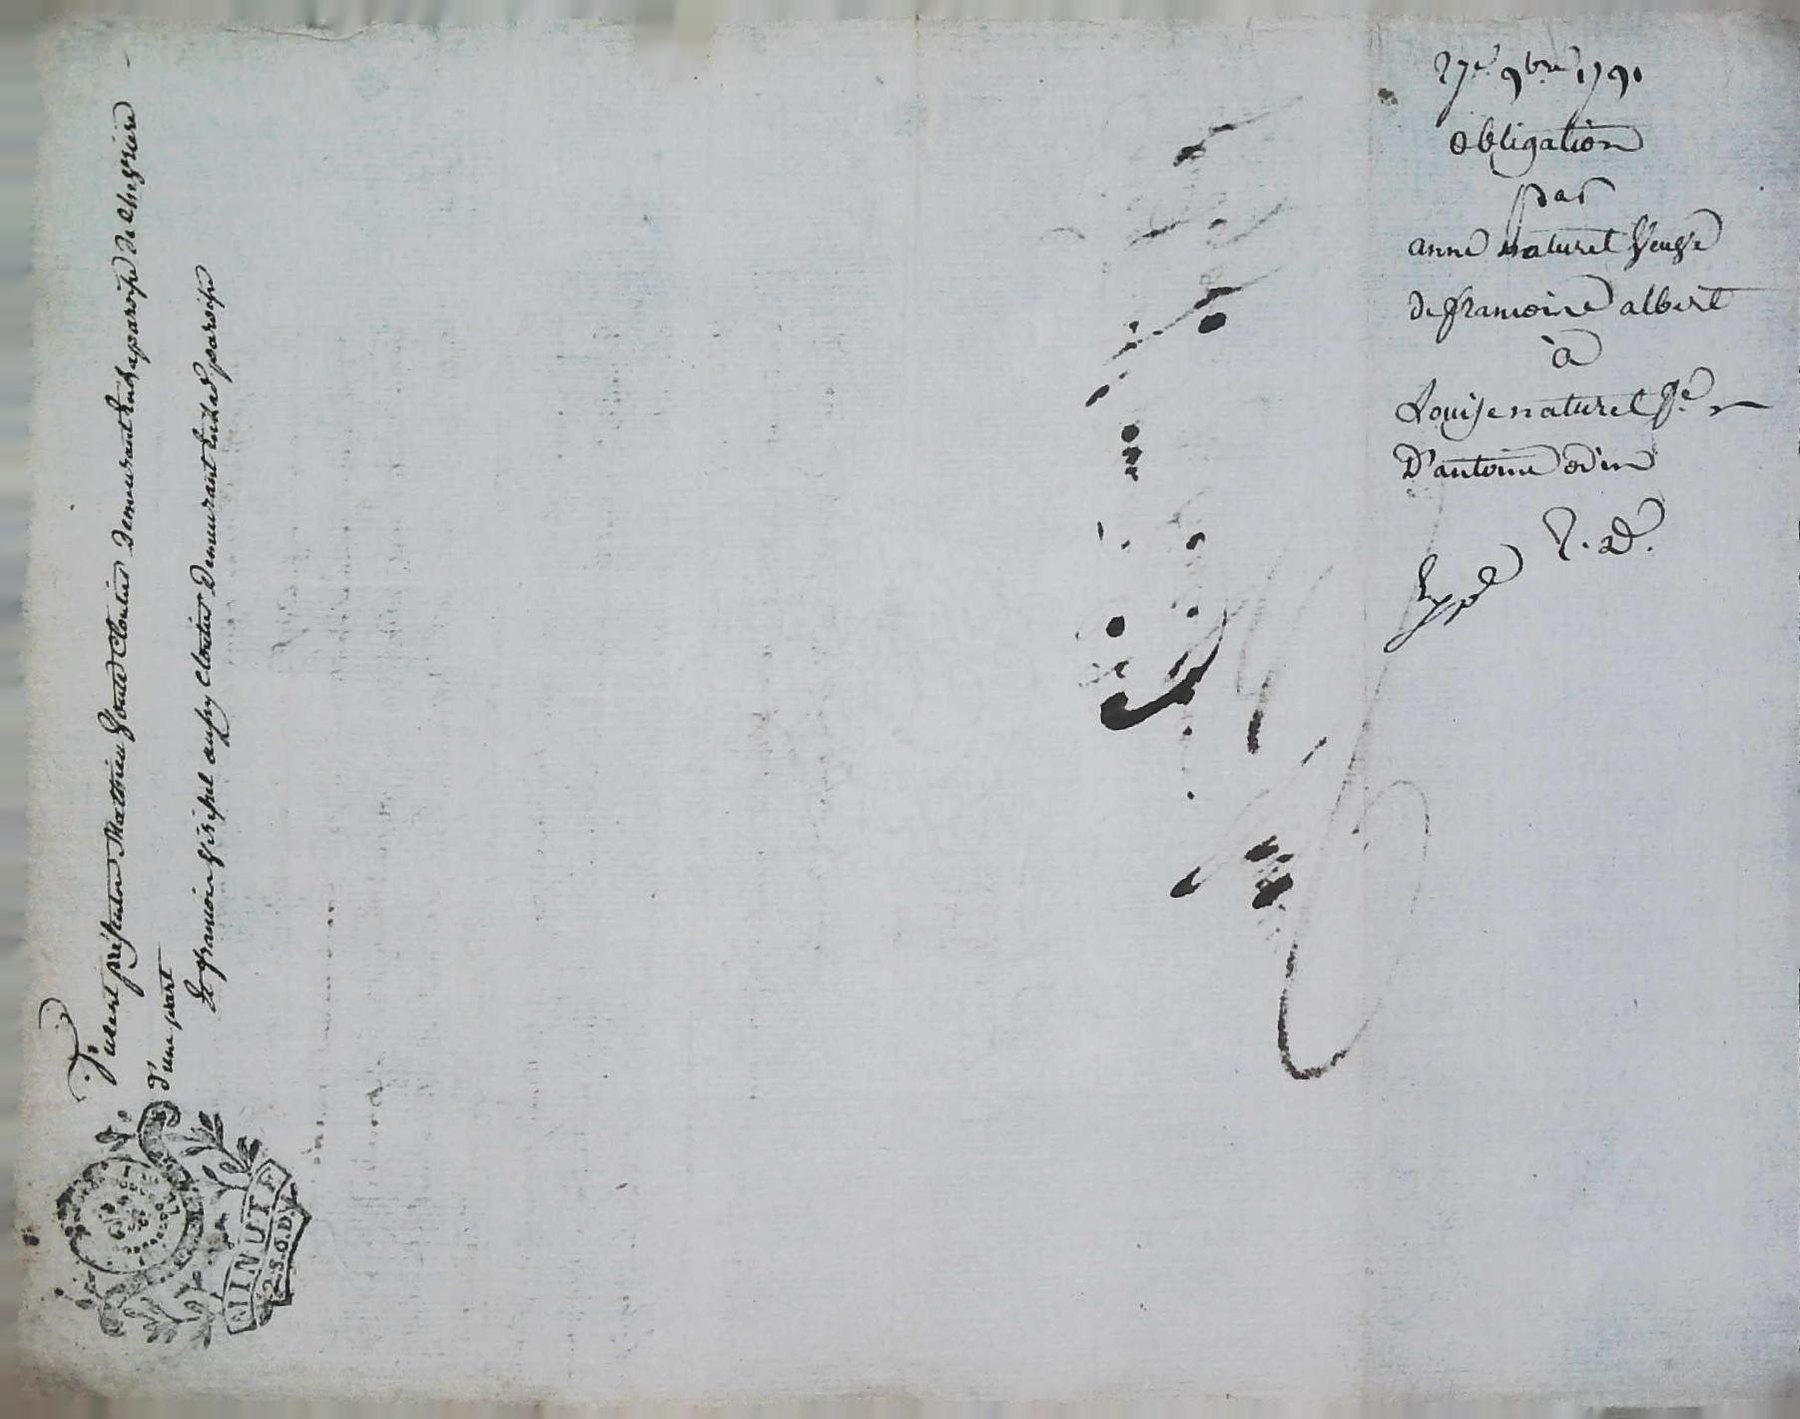 27e. 9bre 1791
obligation
par
anne naturel veuve
de francoise albert
à
Louise naturel fe.
D'antoine odin
Exp.d
Furent présents Mathieu Cloutier demeurant en la paroisse de
d'une part
Et francois aussy Cloutier Demeurant en lad. paroisse
MINUTE
2.S.6.D.